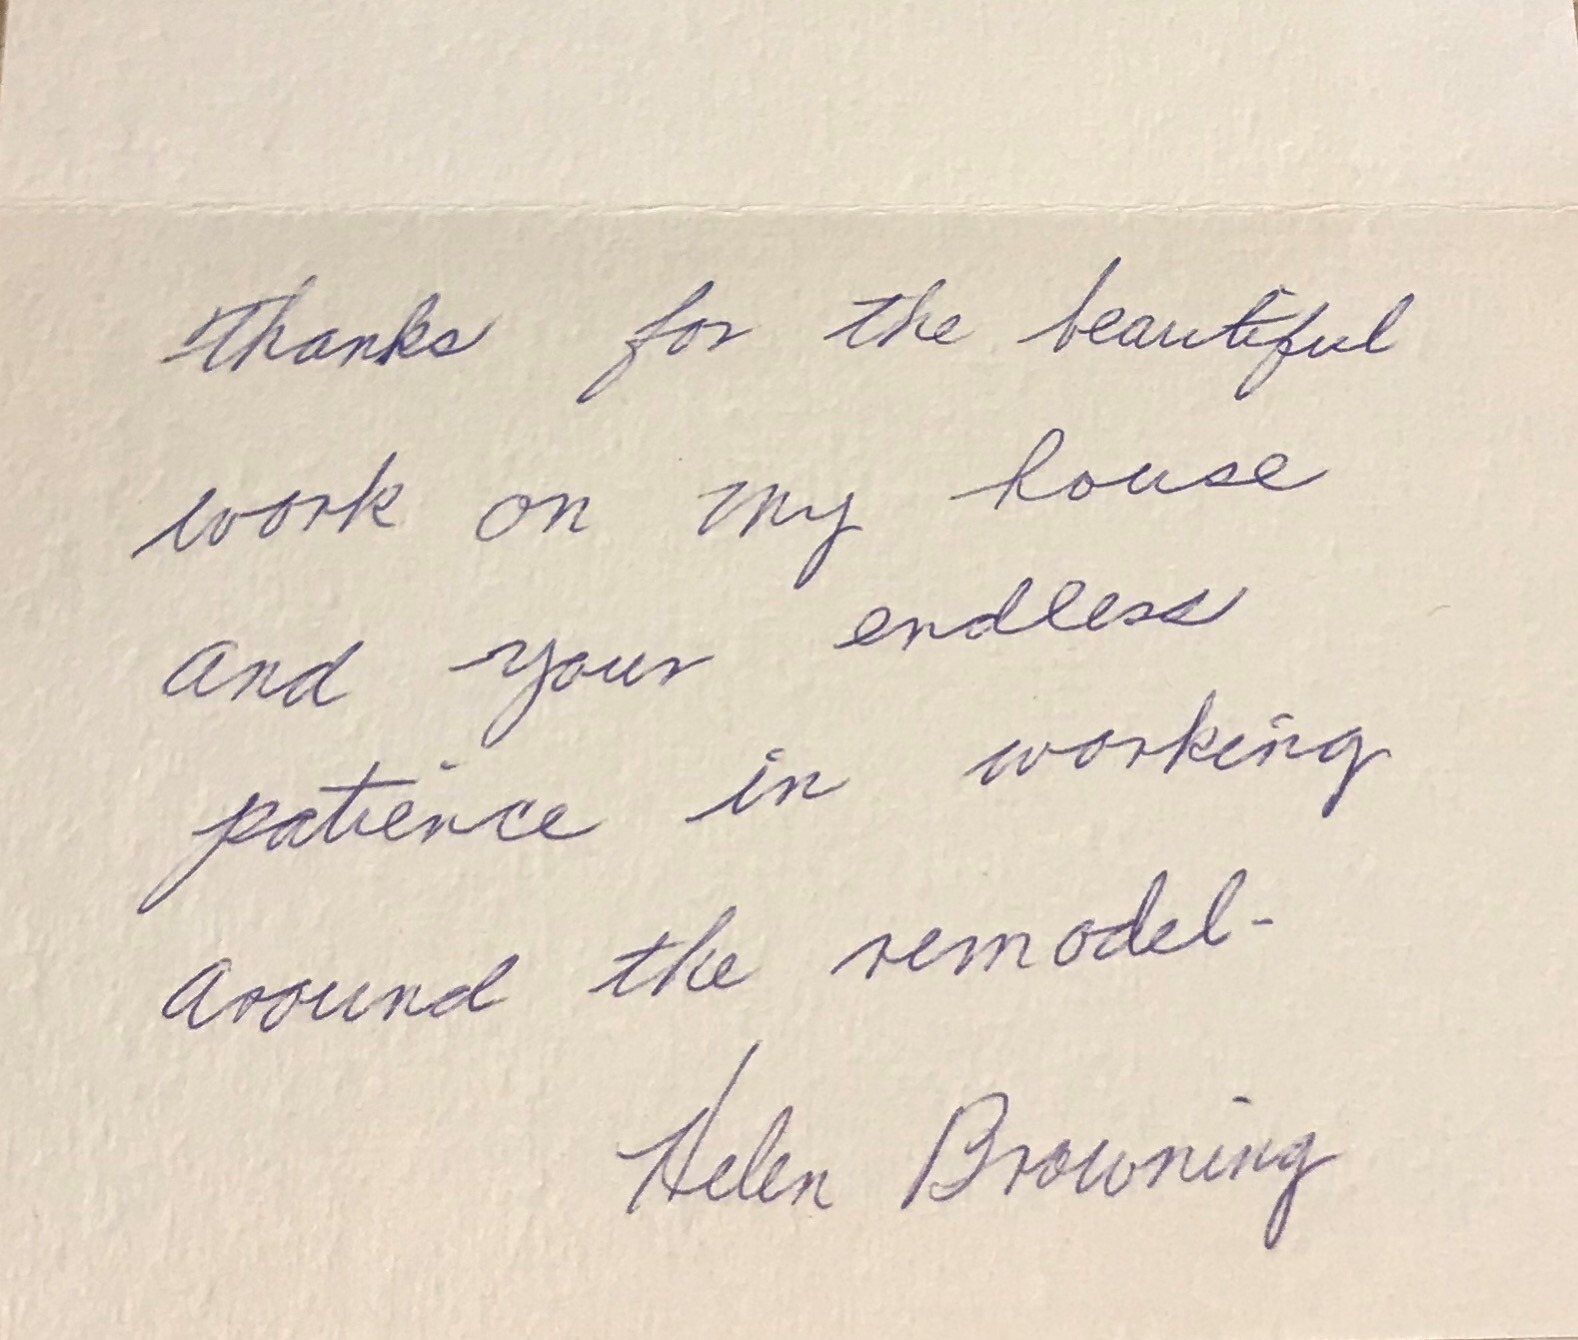 Thanks for the beautiful
work on my house
and your endless
patience in working
around the remodel-
Helen Browning